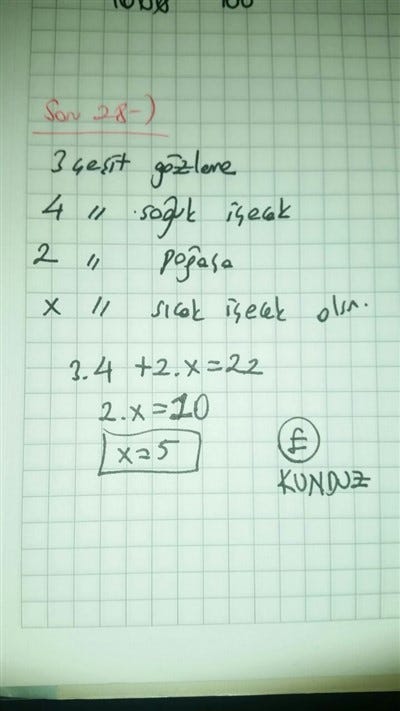 Soru 28-)
3 çeşit gözleme
4 " soğuk içecek
2 " poğaça
x " sıcak içecek olsn.
3.4 +2.x=22
2.x=10
x=5
£
KUNDUZ